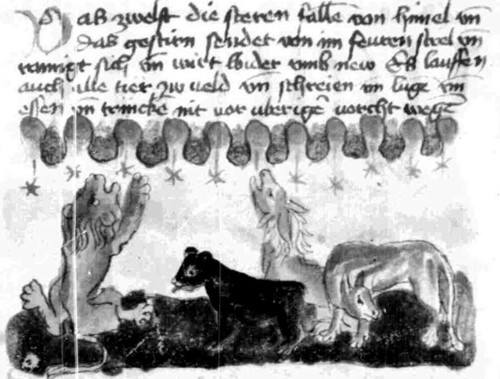 Das zwelft die steren falle von himel vn
das gestirn sendet von im feuren strel vn
sich vn wirt wider vmb new Es lauffen
auch alle tier zw veld vn schreien vn luge vn
essen vn trincke nit vor vberige vorcht wege